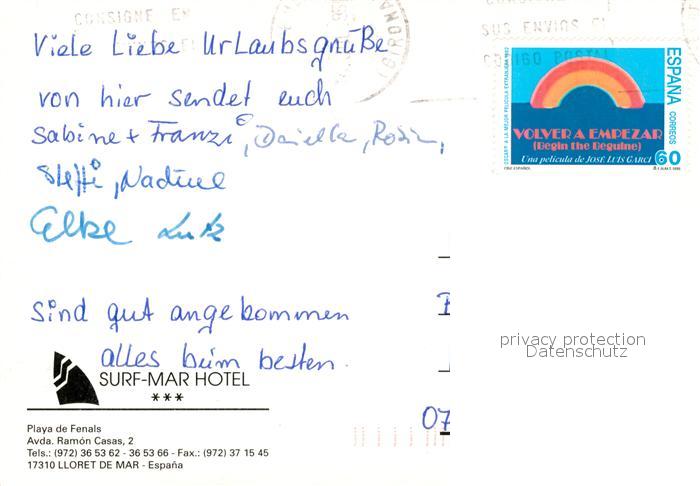 CONSIGNE EN
GIRONA
SUS ENVIOS EL
CODIGO POSTAL
Viele Liebe Urlaubsgrüße
von hier sendet euch
Sabine + Franzi, Daniella, Robin,
Steffi, Nadine
Elke Lutz
Sind gut angekommen
alles beim besten.
SURF-MAR HOTEL
***
Playa de Fenals
Avda. Ramón Casas, 2
Tels.: (972) 36 53 62 - 36 53 66 - Fax.: (972) 37 15 45
17310 LLORET DE MAR - España
OSCAR'S A LA MEJOR PELICULA EXTRANJERA 1982
ESPAÑA
CORREOS
VOLVER A EMPEZAR
(Begin the Beguine)
Una película de JOSÉ LUIS GARCI
60
CINE ESPAÑOL
privacy protection
Datenschutz
07